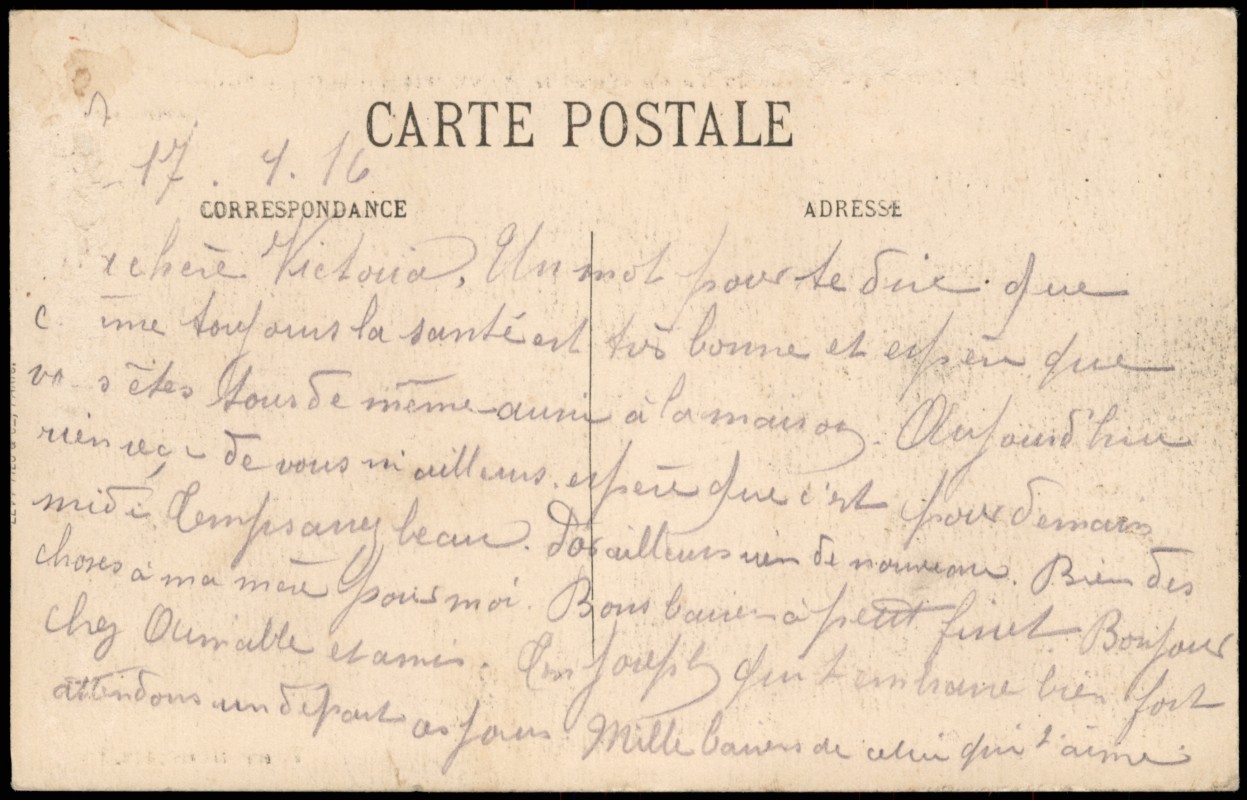 CARTE POSTALE
17.4.16
CORRESPONDANCE
ADRESSE
chère Victoria, Un mot pour te dire que
toujours la santé est très bonne et espère que
êtes tous de même aussi à la maison. Aujourd'hui
rien reçu de vous ni ailleurs, espère que c'est pour demain
midi. Temps assez beau. Par ailleurs rien de nouveau. Bien des
choses à ma mère pour moi. Bons baisers à petit finet. Bonjour
chez et amis. Ton Joseph qui t'embrasse bien fort
attendons un départ ces jours Mille baisers de celui qui t'aime